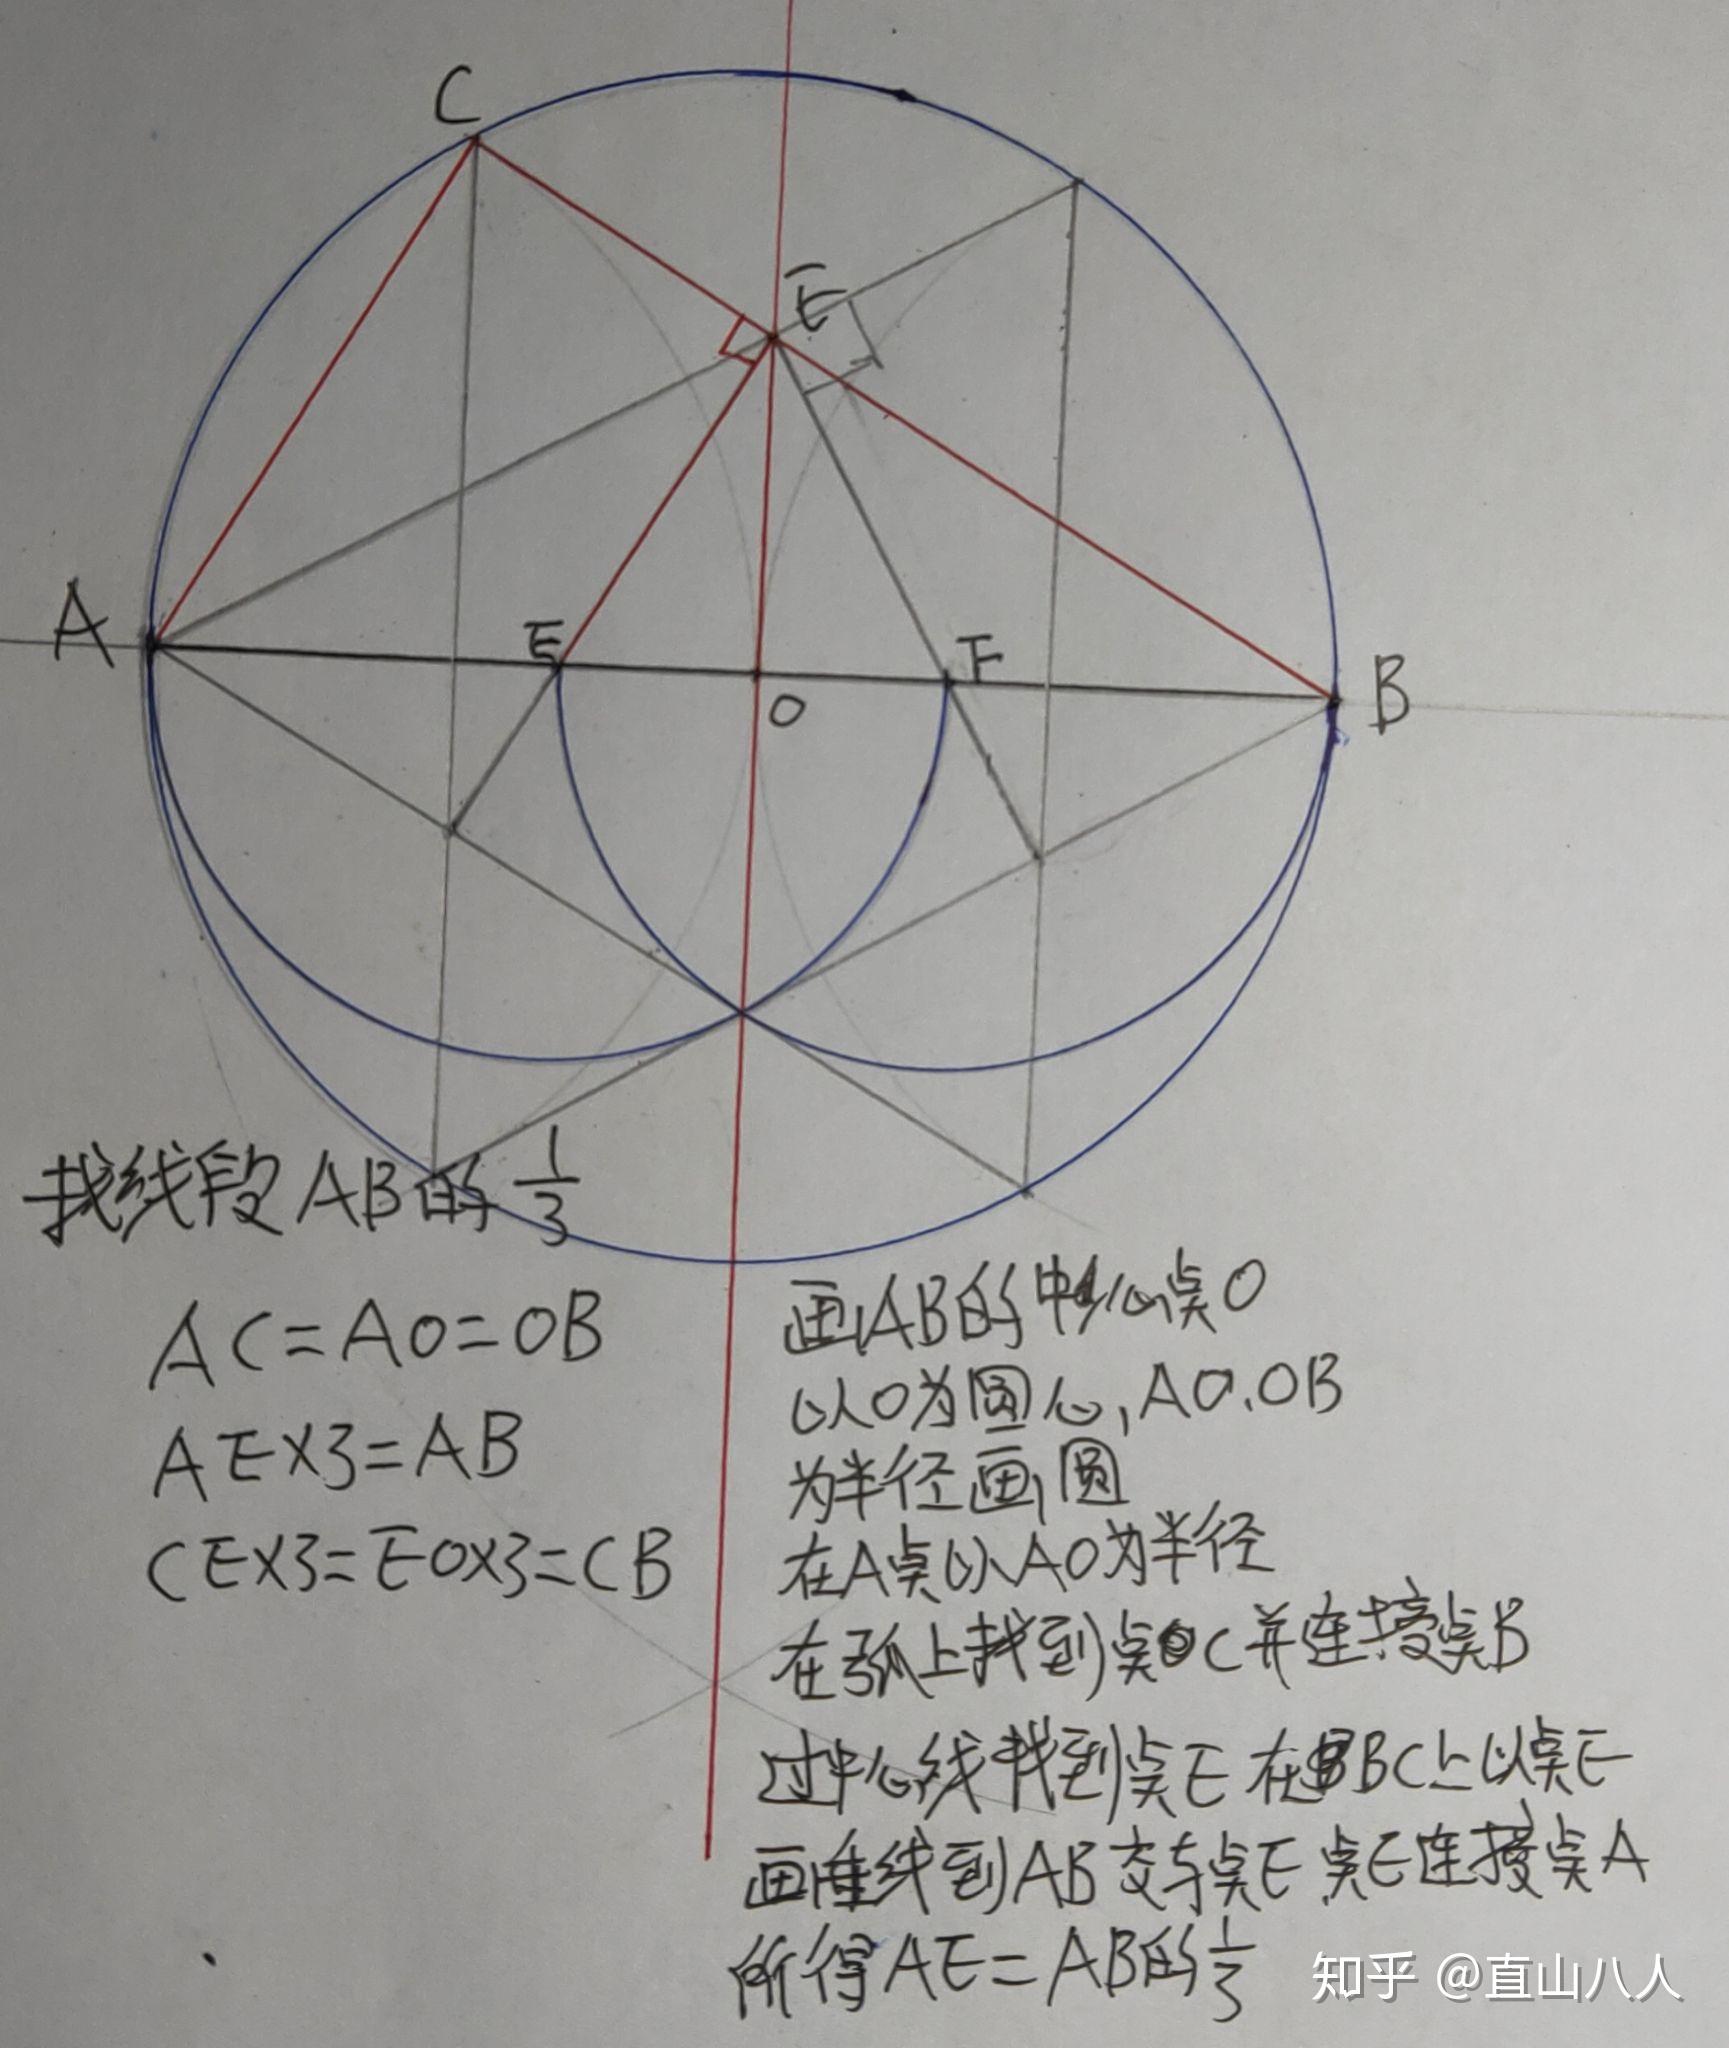 C
E
A
E
F
O
B
找线段AB的1/3
AC=AO=OB
AE×3=AB
CE×3=EO×3=CB
画AB的中心点O
以O为圆心,AO.OB
为半径画圆
在A点以AO为半径
在弧上找到点C并连接点B
过中心线找到点E在BC上以点E
画垂线到AB交与点E点E连接点A
所得AE=AB的1/3
知乎 @直山八人